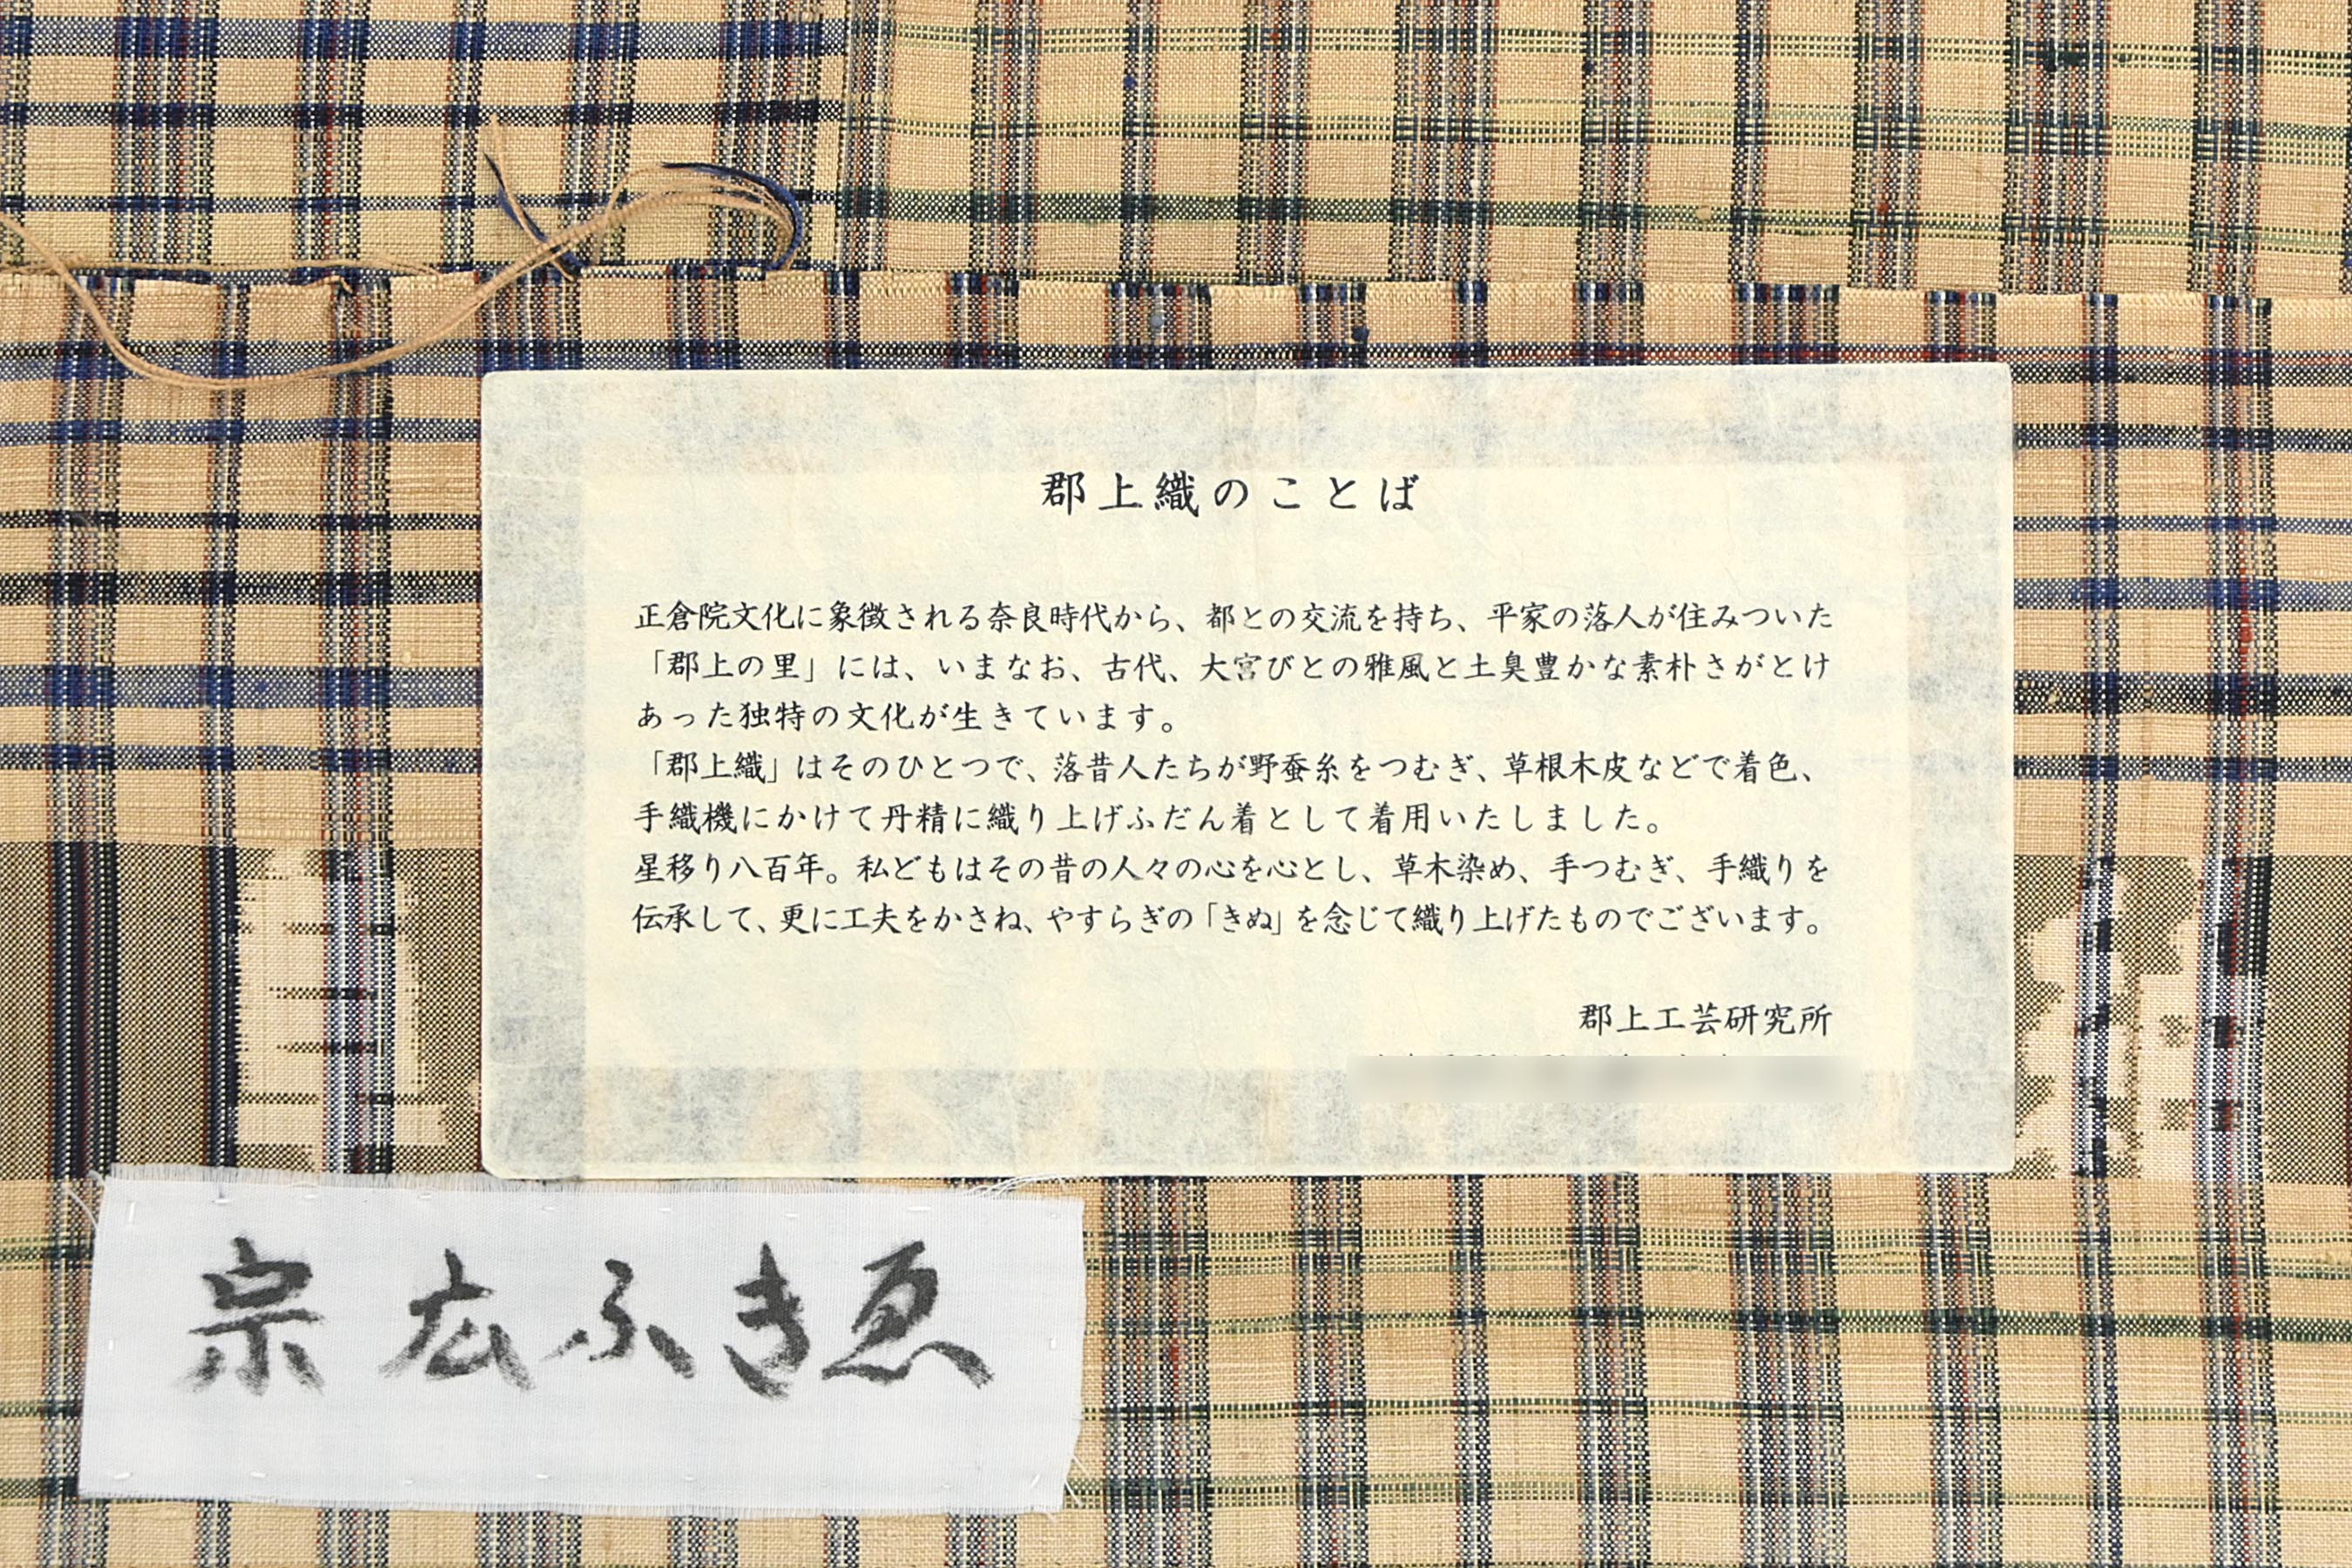 郡上織のことば
正倉院文化に象徴される奈良時代から、都との交流を持ち、平家の落人が住みついた
「郡上の里」には、いまなお、古代、大宮びとの雅風と土臭豊かな素朴さがとけ
あった独特の文化が生きています。
「郡上織」はそのひとつで、落昔人たちが野蚕糸をつむぎ、草根木皮などで着色、
手織機にかけて丹精に織り上げふだん着として着用いたしました。
星移り八百年。私どもはその昔の人々の心を心とし、草木染め、手つむぎ、手織りを
伝承して、更に工夫をかさね、やすらぎの「きぬ」を念じて織り上げたものでございます。
郡上工芸研究所
宗広ふきゑ